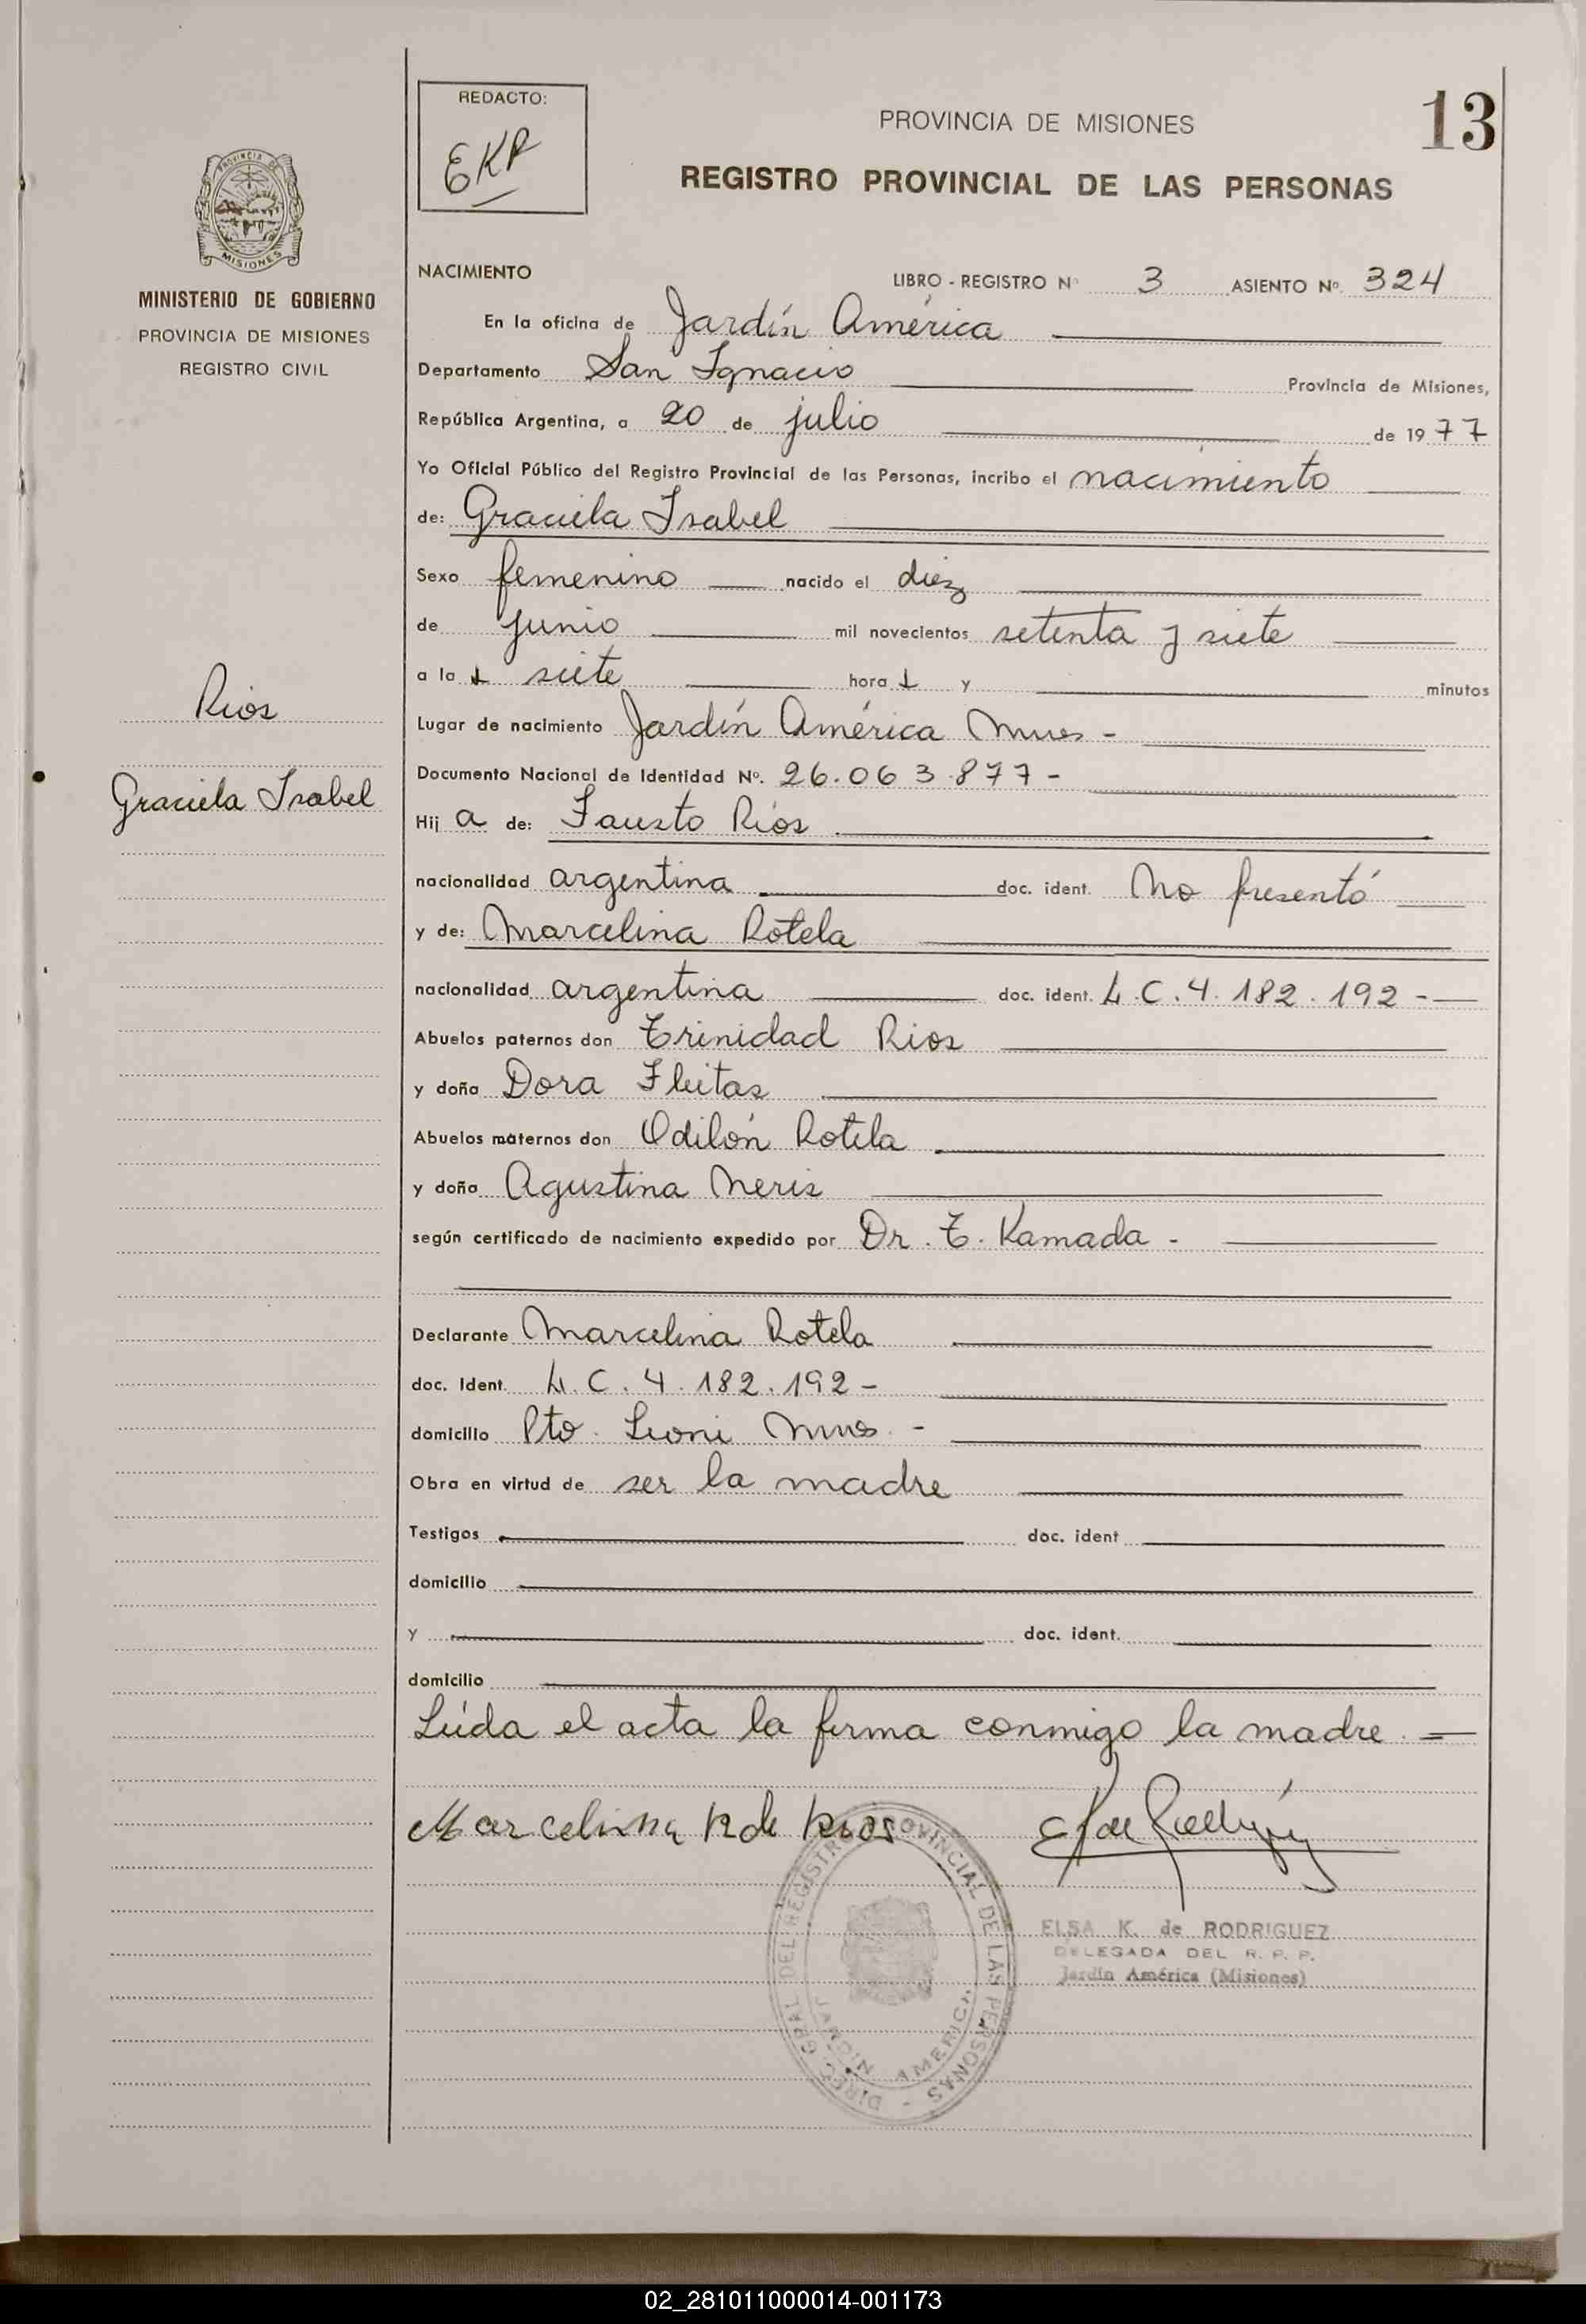 REDACTO:
EKR
PROVINCIA DE MISIONES
13
REGISTRO PROVINCIAL DE LAS PERSONAS
PROVINCIA DE
MISIONES
MINISTERIO DE GOBIERNO
PROVINCIA DE MISIONES
REGISTRO CIVIL
Rios
Graciela Isabel
NACIMIENTO LIBRO - REGISTRO Nº 3 ASIENTO Nº 324
En la oficina de Jardín América
Departamento San Ignacio Provincia de Misiones,
República Argentina, a 20 de julio de 1977
Yo Oficial Público del Registro Provincial de las Personas, incribo el nacimiento
de: Graciela Isabel
Sexo femenino nacido el diez
de junio mil novecientos setenta y siete
a la s siete hora s y minutos
Lugar de nacimiento Jardín América Mnes -
Documento Nacional de Identidad Nº. 26.063.877-
Hij a de: Fausto Ríos
nacionalidad argentina doc. ident. No presentó
y de: Marcelina Rotela
nacionalidad argentina doc. ident. L.C.4.182.192-
Abuelos paternos don Trinidad Rios
y doña Dora Fleitas
Abuelos maternos don Odilón Rotela
y doña Agustina Neris
según certificado de nacimiento expedido por Dr. T. Kamada -
Declarante Marcelina Rotela
doc. Ident. L.C.4.182.192-
domicilio Pto. Leoni Mnes. -
Obra en virtud de ser la madre
Testigos doc. ident
domicilio
y doc. ident.
domicilio
Leída el acta la firma conmigo la madre. =
Marcelina R de Rios
DIREC. GRAL DEL REGISTRO PROVINCIAL DE LAS PERSONAS -
JARDIN AMERICA
ELSA K. de RODRIGUEZ
DELEGADA DEL R. P. P.
Jardín América (Misiones)
02_281011000014-001173